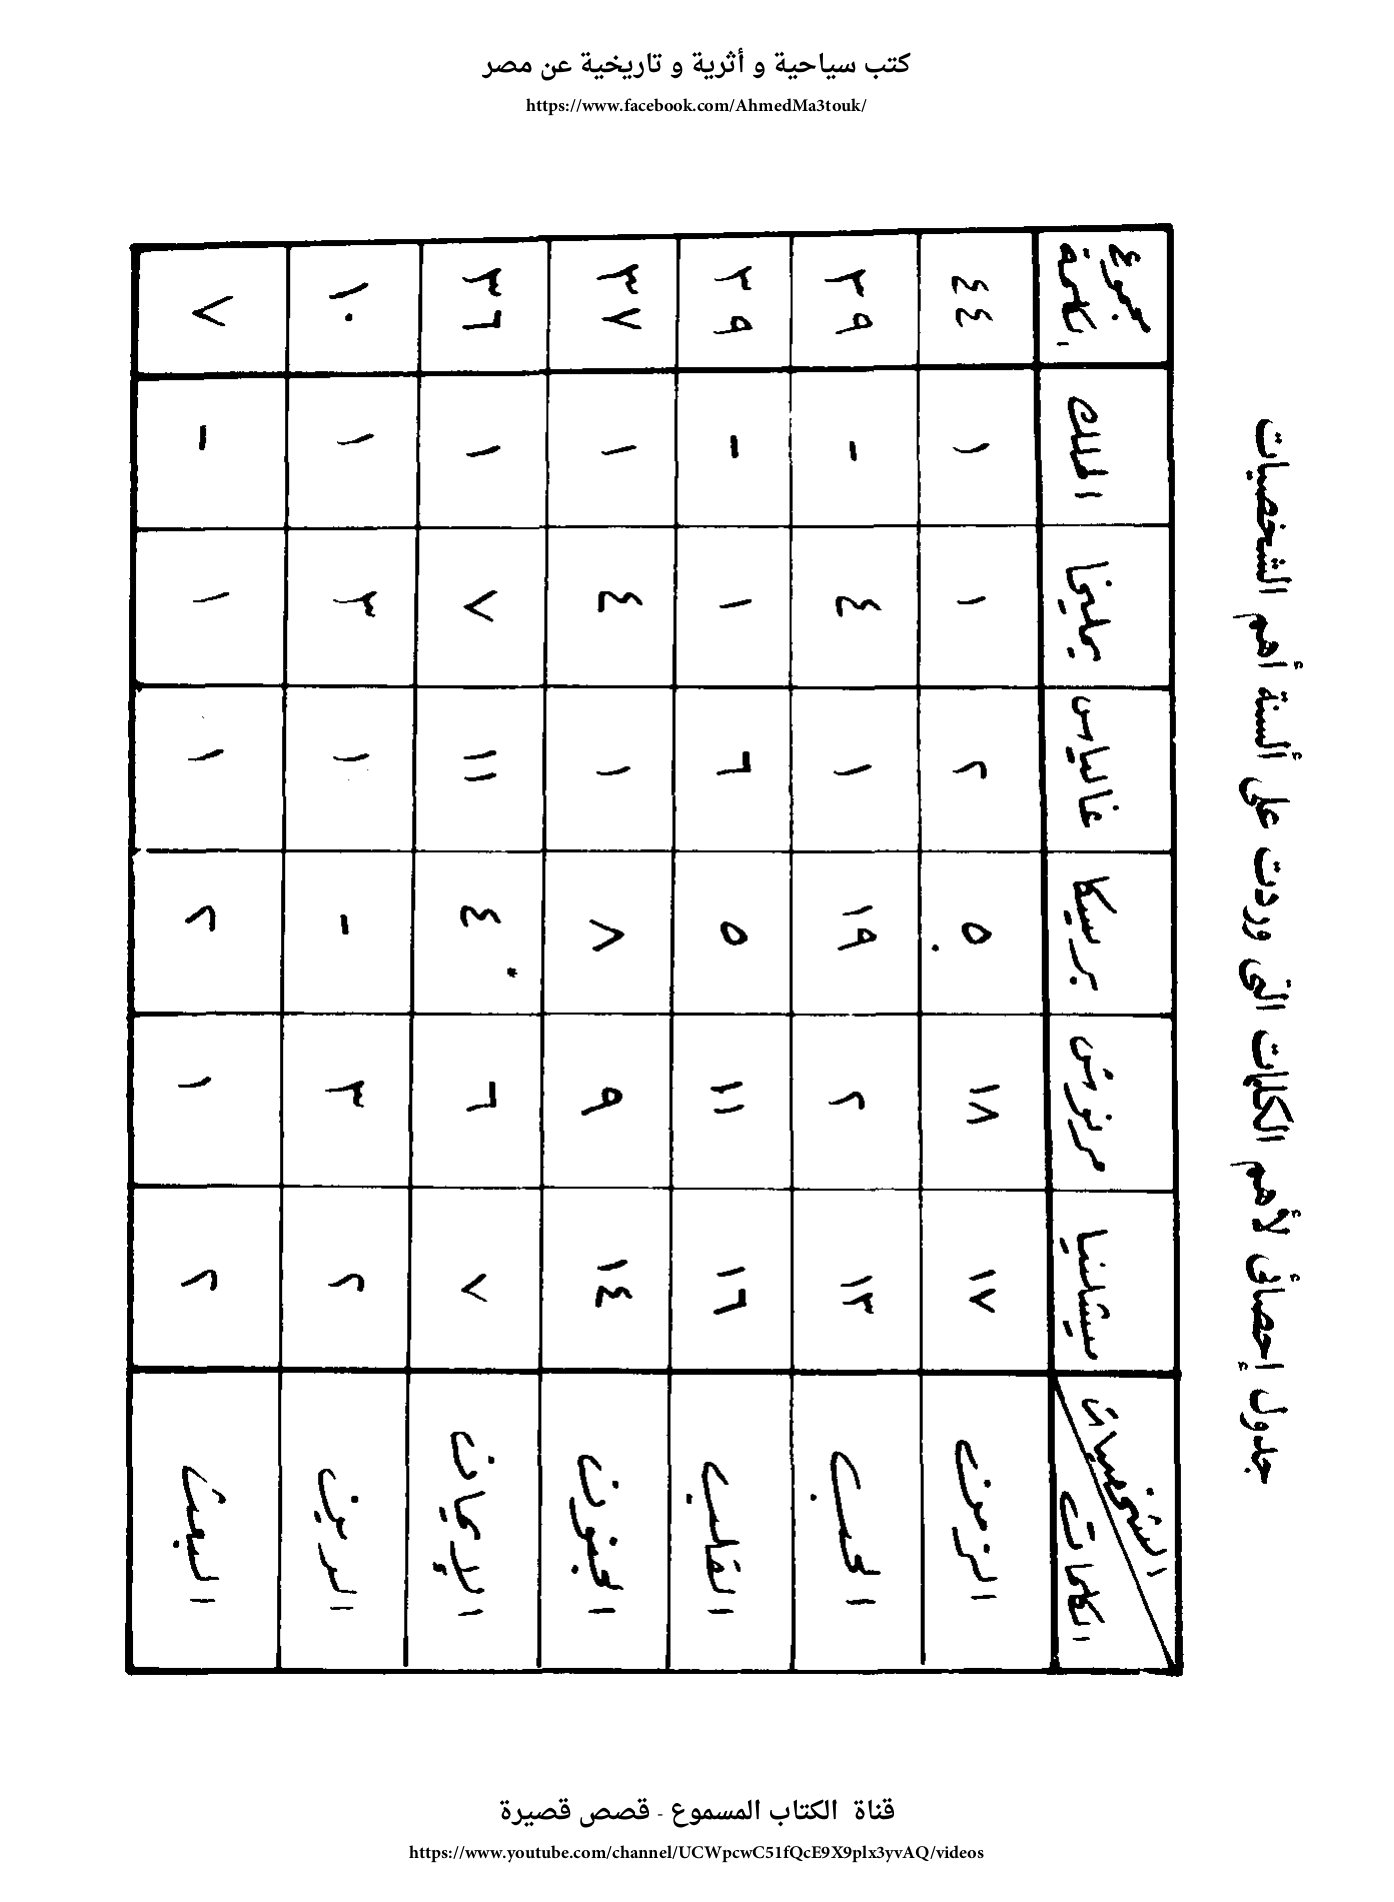 كتب سياحية و أثرية و تاريخية عن مصر
https://www.facebook.com/AhmedMa3touk/
جدول إحصائى لأهم الكلمات التى وردت على ألسنة أهم الشخصيات
الشخصيات الكلمات | ميشلنيا | مرنوش | بريسكا | غالياس | يمليخا | الملك | مجموع الكلمة
الزمن | ١٧ | ١٨ | ٥ | ٢ | ١ | ١ | ٤٤
الحب | ١٣ | ٢ | ١٩ | ١ | ٤ | - | ٣٩
القلب | ١٦ | ١١ | ٥ | ٦ | ١ | - | ٣٩
الجنون | ١٤ | ٩ | ٨ | ١ | ٤ | ١ | ٣٧
الإيمان | ٧ | ٦ | ٤ | ١١ | ٧ | ١ | ٣٦
الدين | ٢ | ٣ | - | ١ | ٣ | ١ | ١٠
البعث | ٢ | ١ | ٢ | ١ | ١ | - | ٧
قناة الكتاب المسموع - قصص قصيرة
https://www.youtube.com/channel/UCWpcwC51fQcE9X9plx3yvAQ/videos